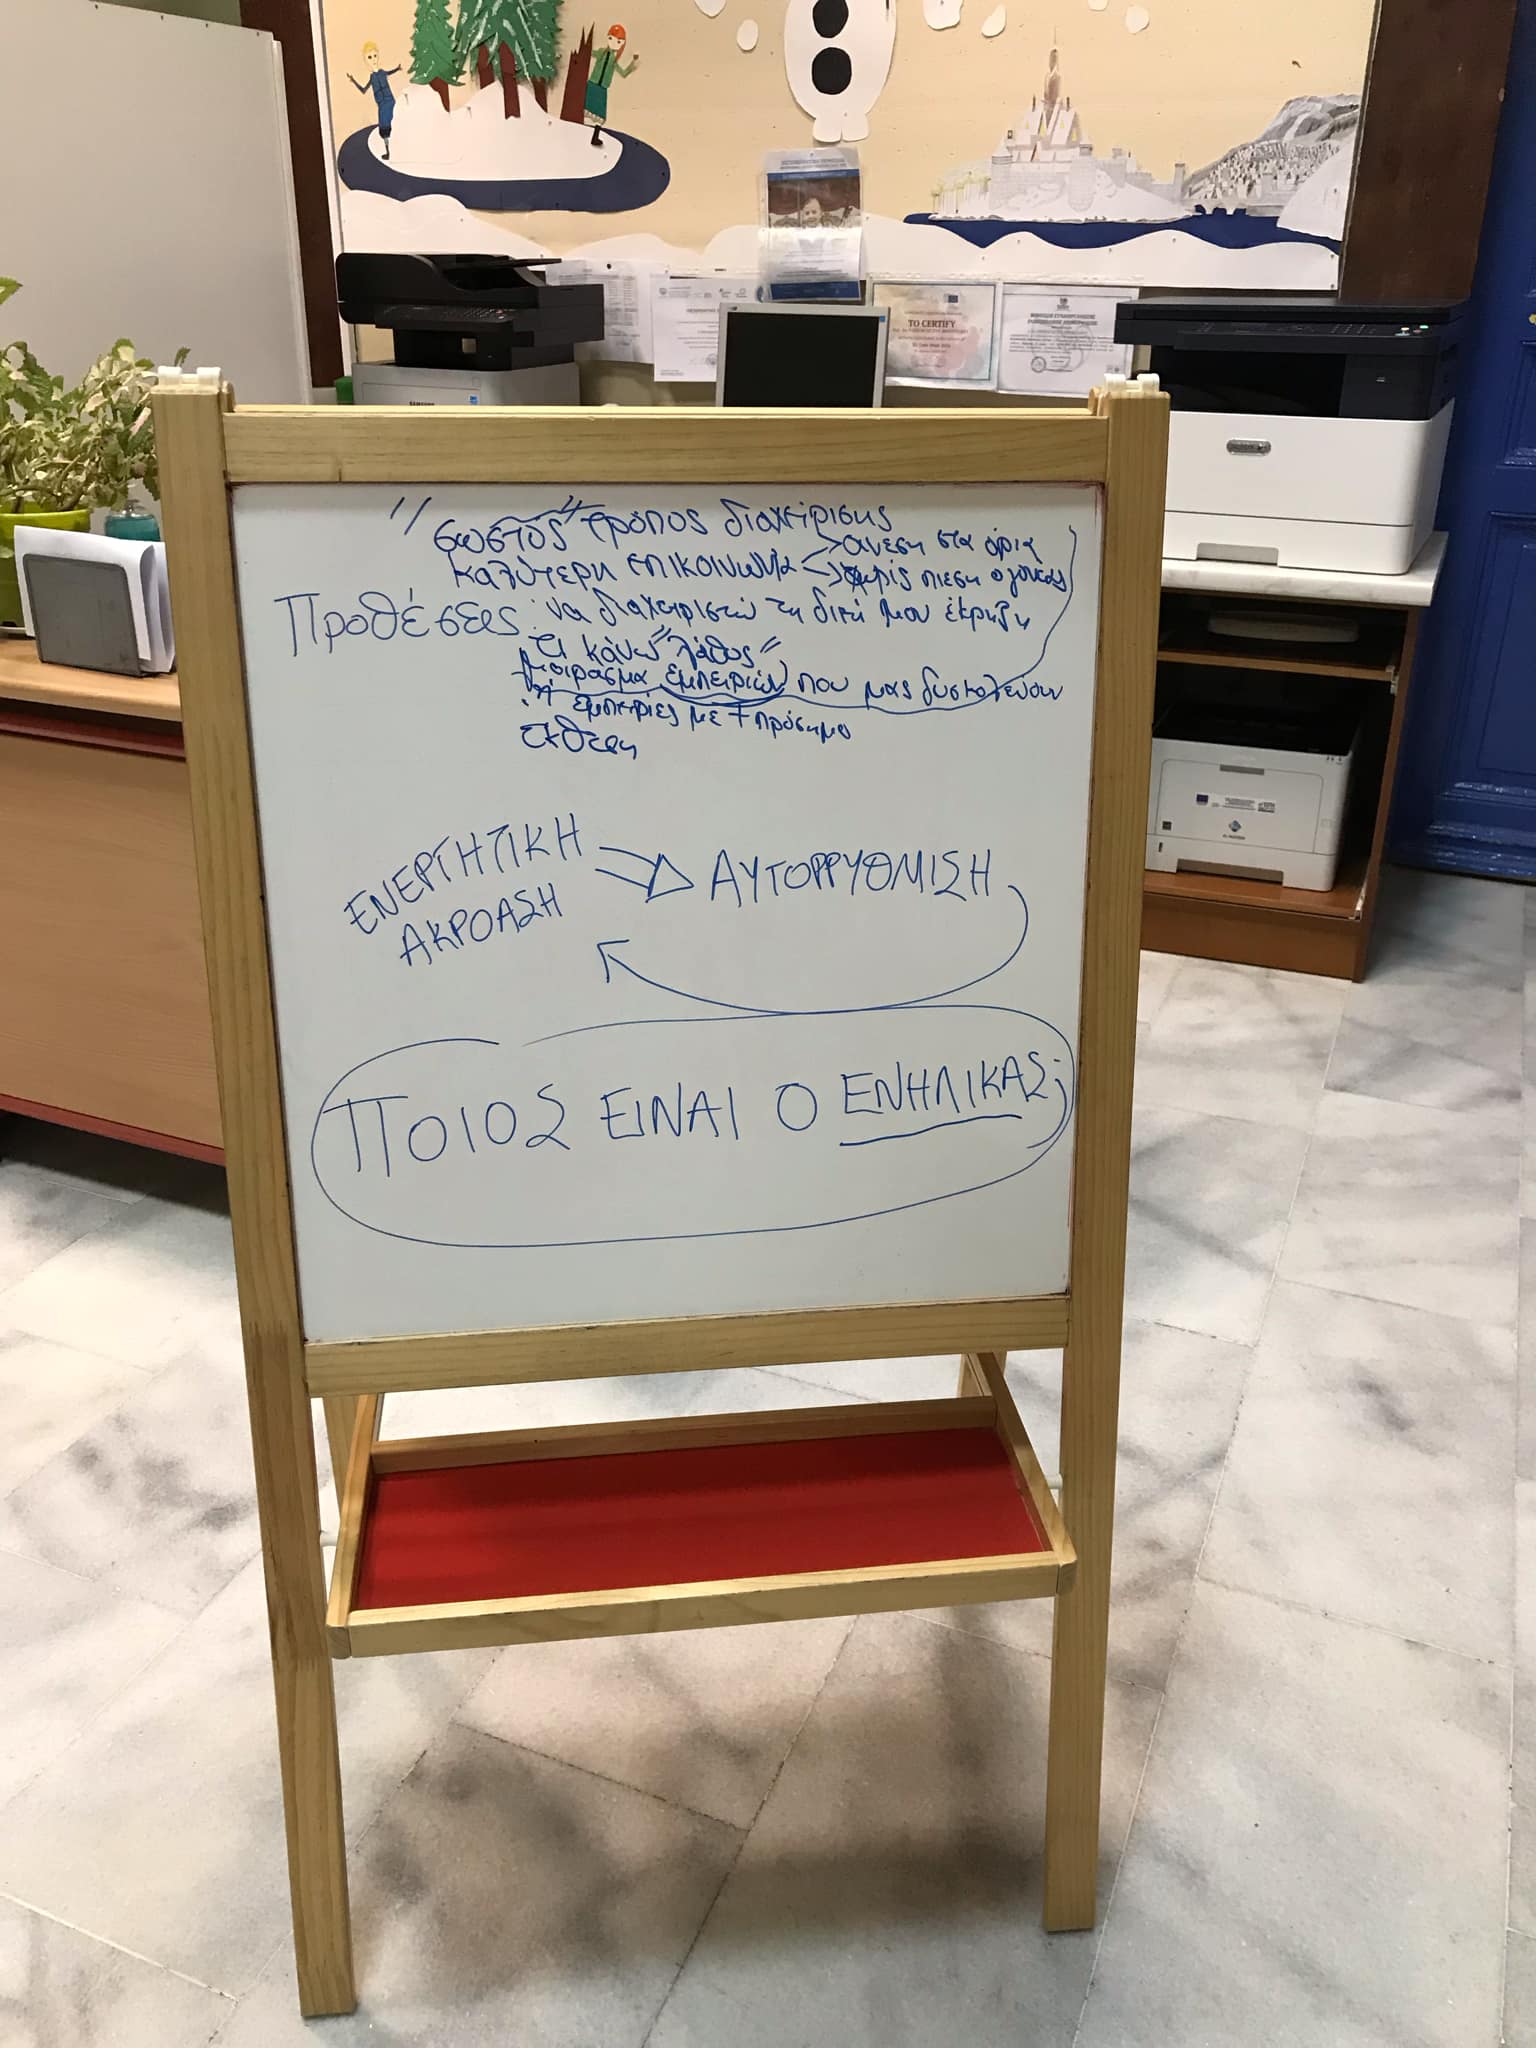 "σωστός" τρόπος διαχείρισης
καλύτερη επικοινωνία → άνεση στα όρια
→ χωρίς πιεση ο γονέας
Προθέσεις: να διαχειριστώ τη δική μου έκρηξη
τι κάνω "λάθος"
Μοίρασμα εμπειριών που μας δυσκολεύουν
ή εμπειρίες με + πρόσημο
έκθεση
ΕΝΕΡΓΗΤΙΚΗ
ΑΚΡΟΑΣΗ
ΑΥΤΟΡΡΥΘΜΙΣΗ
ΠΟΙΟΣ ΕΙΝΑΙ Ο ΕΝΗΛΙΚΑΣ;
TO CERTIFY
SAMSUNG